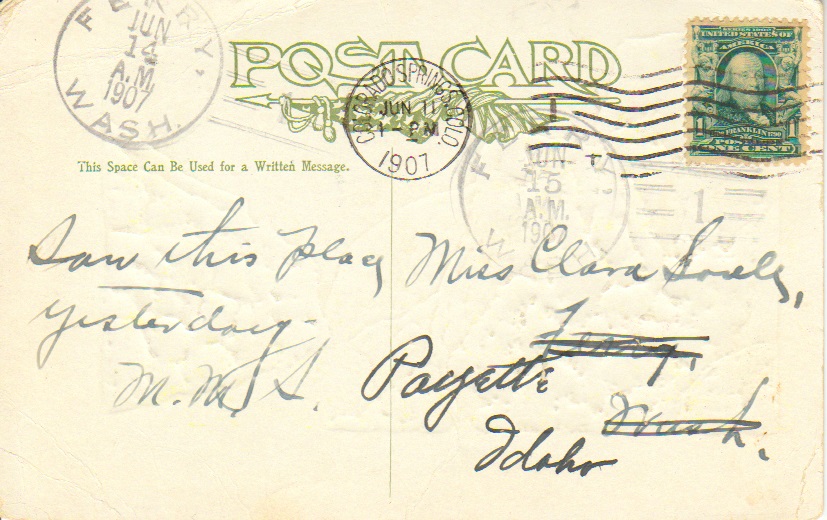 FERRY, WASH.
JUN
14
A.M.
1907
POST CARD
COLORADO SPRINGS, COLO.
JUN 11
1 - PM
1907
1
SERIES 1902
UNITED STATES OF
AMERICA
FRANKLIN
POSTAGE
1 ONE CENT 1
This Space Can Be Used for a Written Message.
JUN
15
A.M.
1907
1
Saw this place
yesterday-
M. M. S.
Miss Clara
Ferry,
Wash.
Payette
Idaho